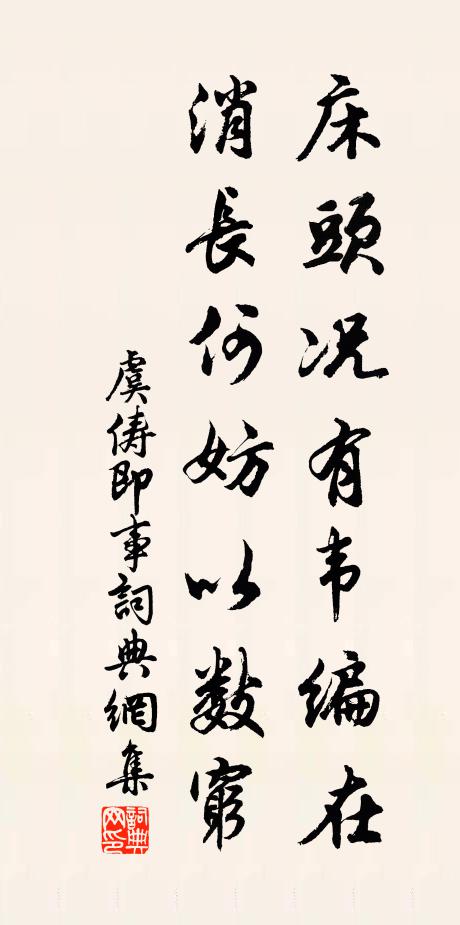 床頭況有韦編在
消長何妨以數窮
虞俦即事詞典網集
詞典网印